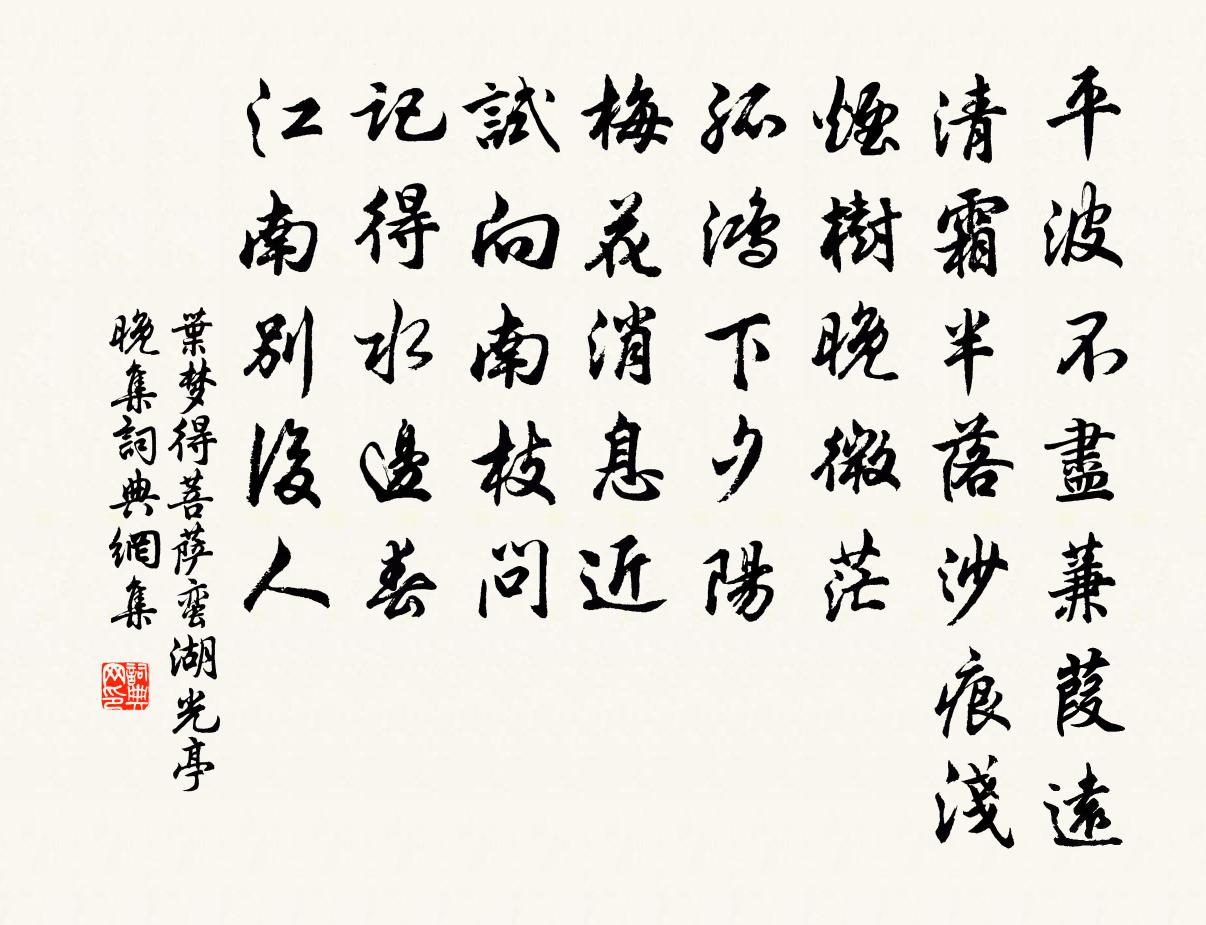 平波不盡蒹葭遠
清霜半落沙痕淺
煙樹晚微茫
孤鴻下夕陽
梅花消息近
試向南枝問
記得水邊春
江南別後人
葉梦得菩萨蛮湖光亭
晚集詞典網集
詞典网印